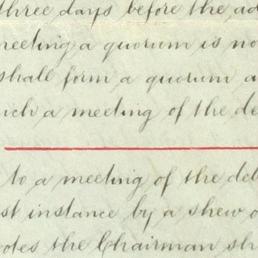 three days before the ad
meeting a quorum is no
shall form a quorum a
ich a meeting of the de
to a meeting of the deb
st instance by a shew o
otes the Chairman sh